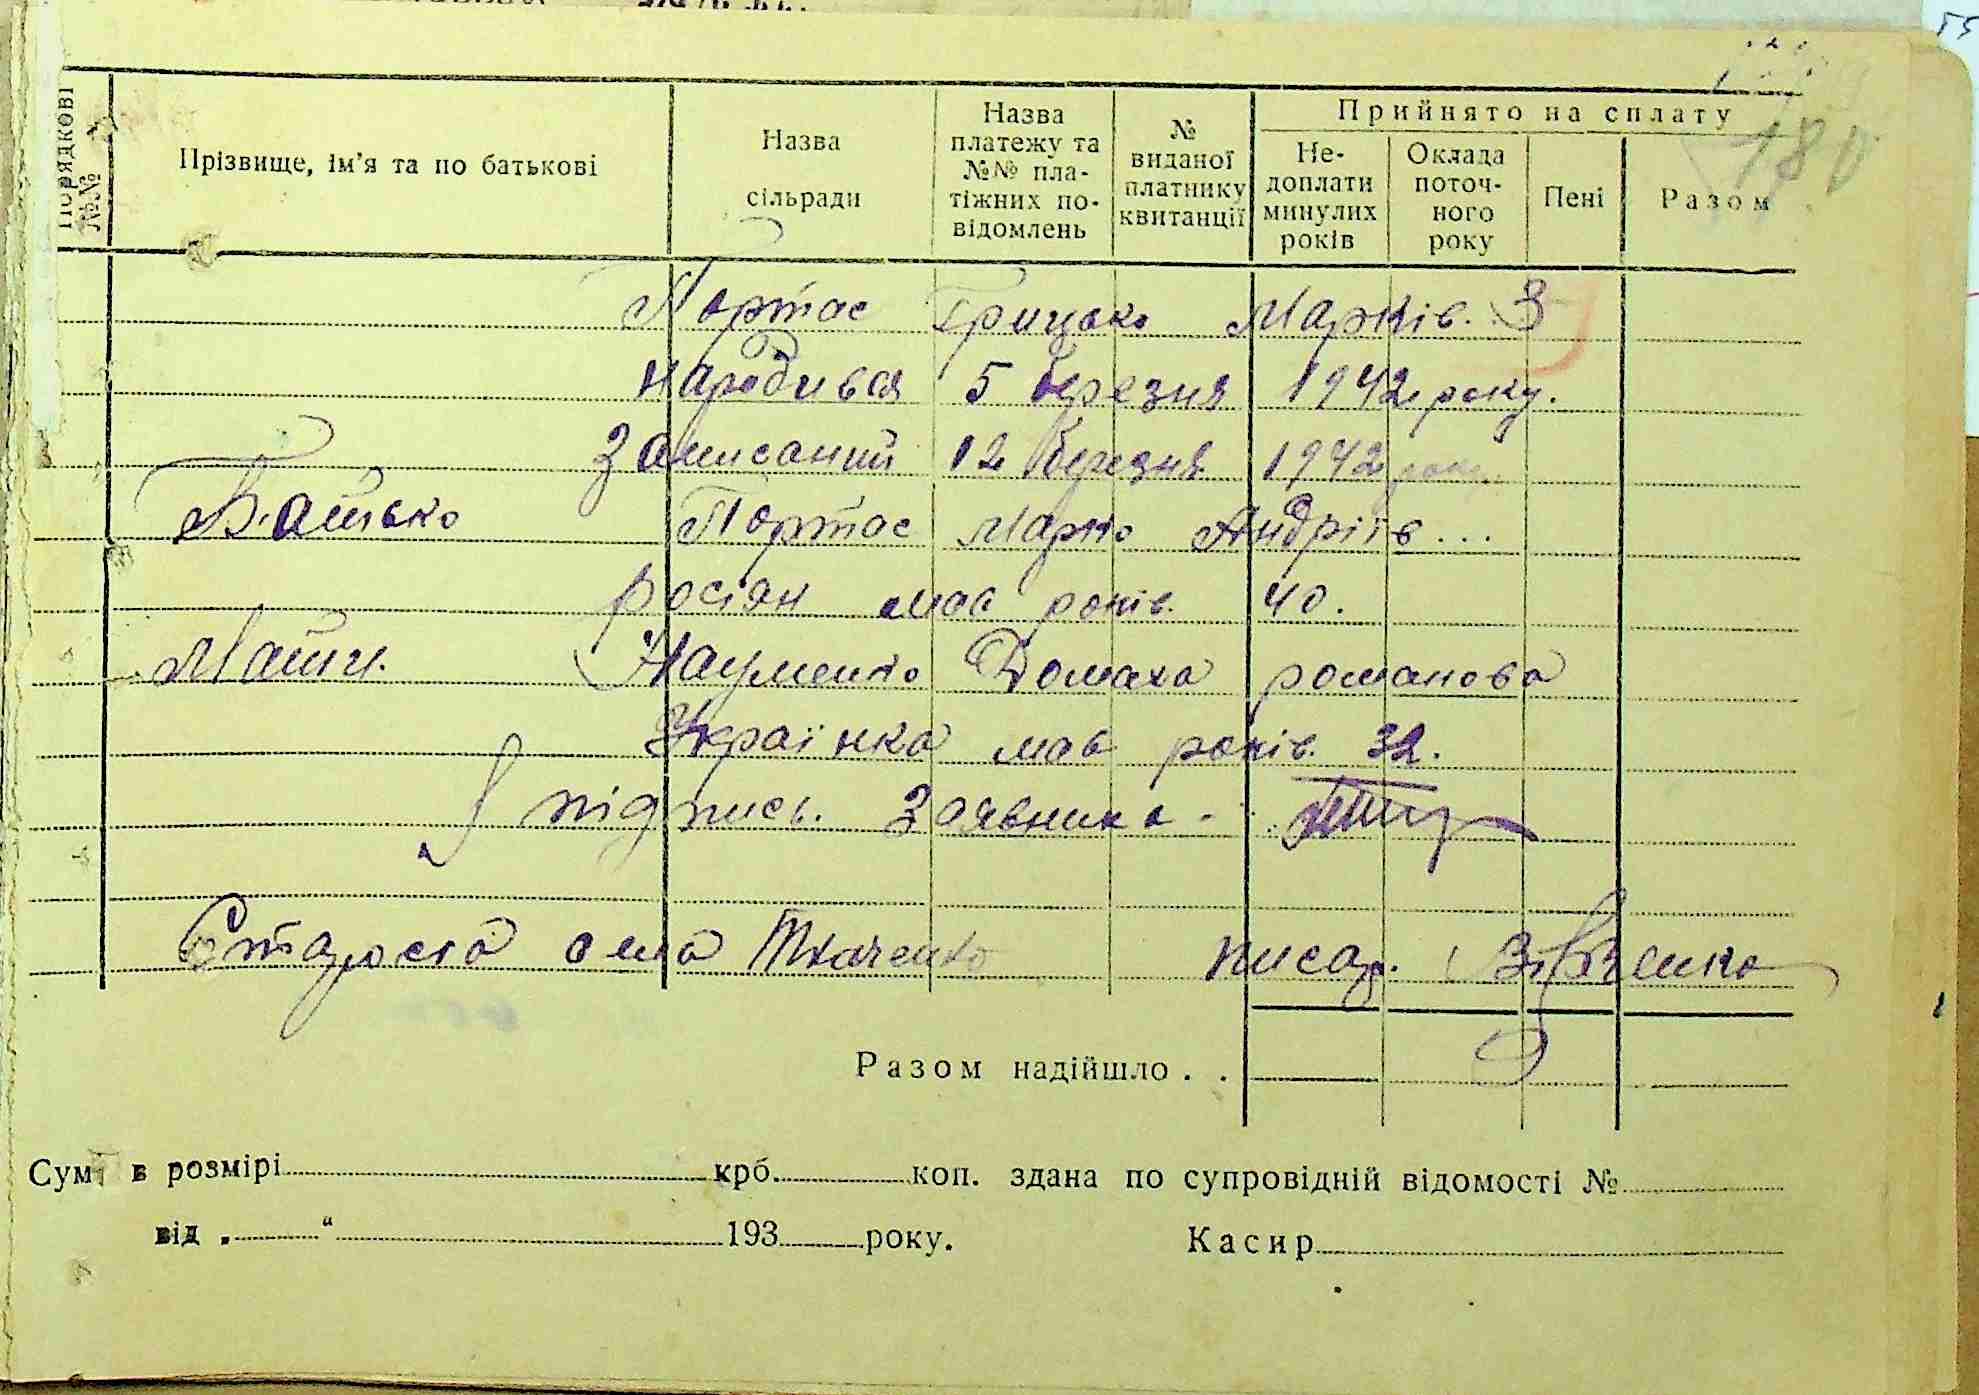 180
Порядкові №№
Прізвище, ім'я та по батькові
Назва сільради
Назва платежу та №№ пла-тіжних по-відомлень
№ виданої платнику квитанції
Прийнято на сплату
Не-доплати минулих років
Оклада поточ-ного року
Пені
Разом
Портас Грицько Марків. 3
народився 5 березня 1942 року.
Записаний 12 березня 1942 року
Батько Портас Марко Андріїв...
росіян має років. 40.
Мати. Науменко Домаха романова
Українка має років. 32.
підпись. Заявника -
Староста села Ткаченко писар.
Разом надійшло . .
Сум в розмірі крб. коп. здана по супровідній відомості №
від . “ 193 року. Касир